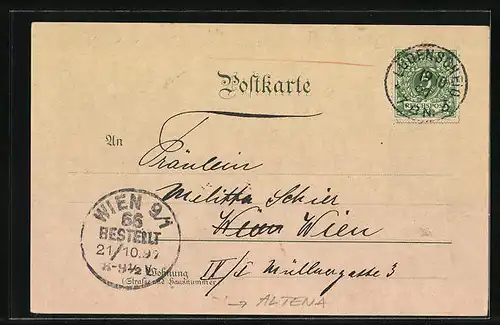 Postkarte
LÜDENSCHEID
An
Fräulein
Melitta Schier
Wien Wien
WIEN 9/1
66
BESTELLT
21/10.9
8-9½V.
Wohnung
(Straße und Hausnummer)
IV/I Müllnergasse 3
→ ALTENA